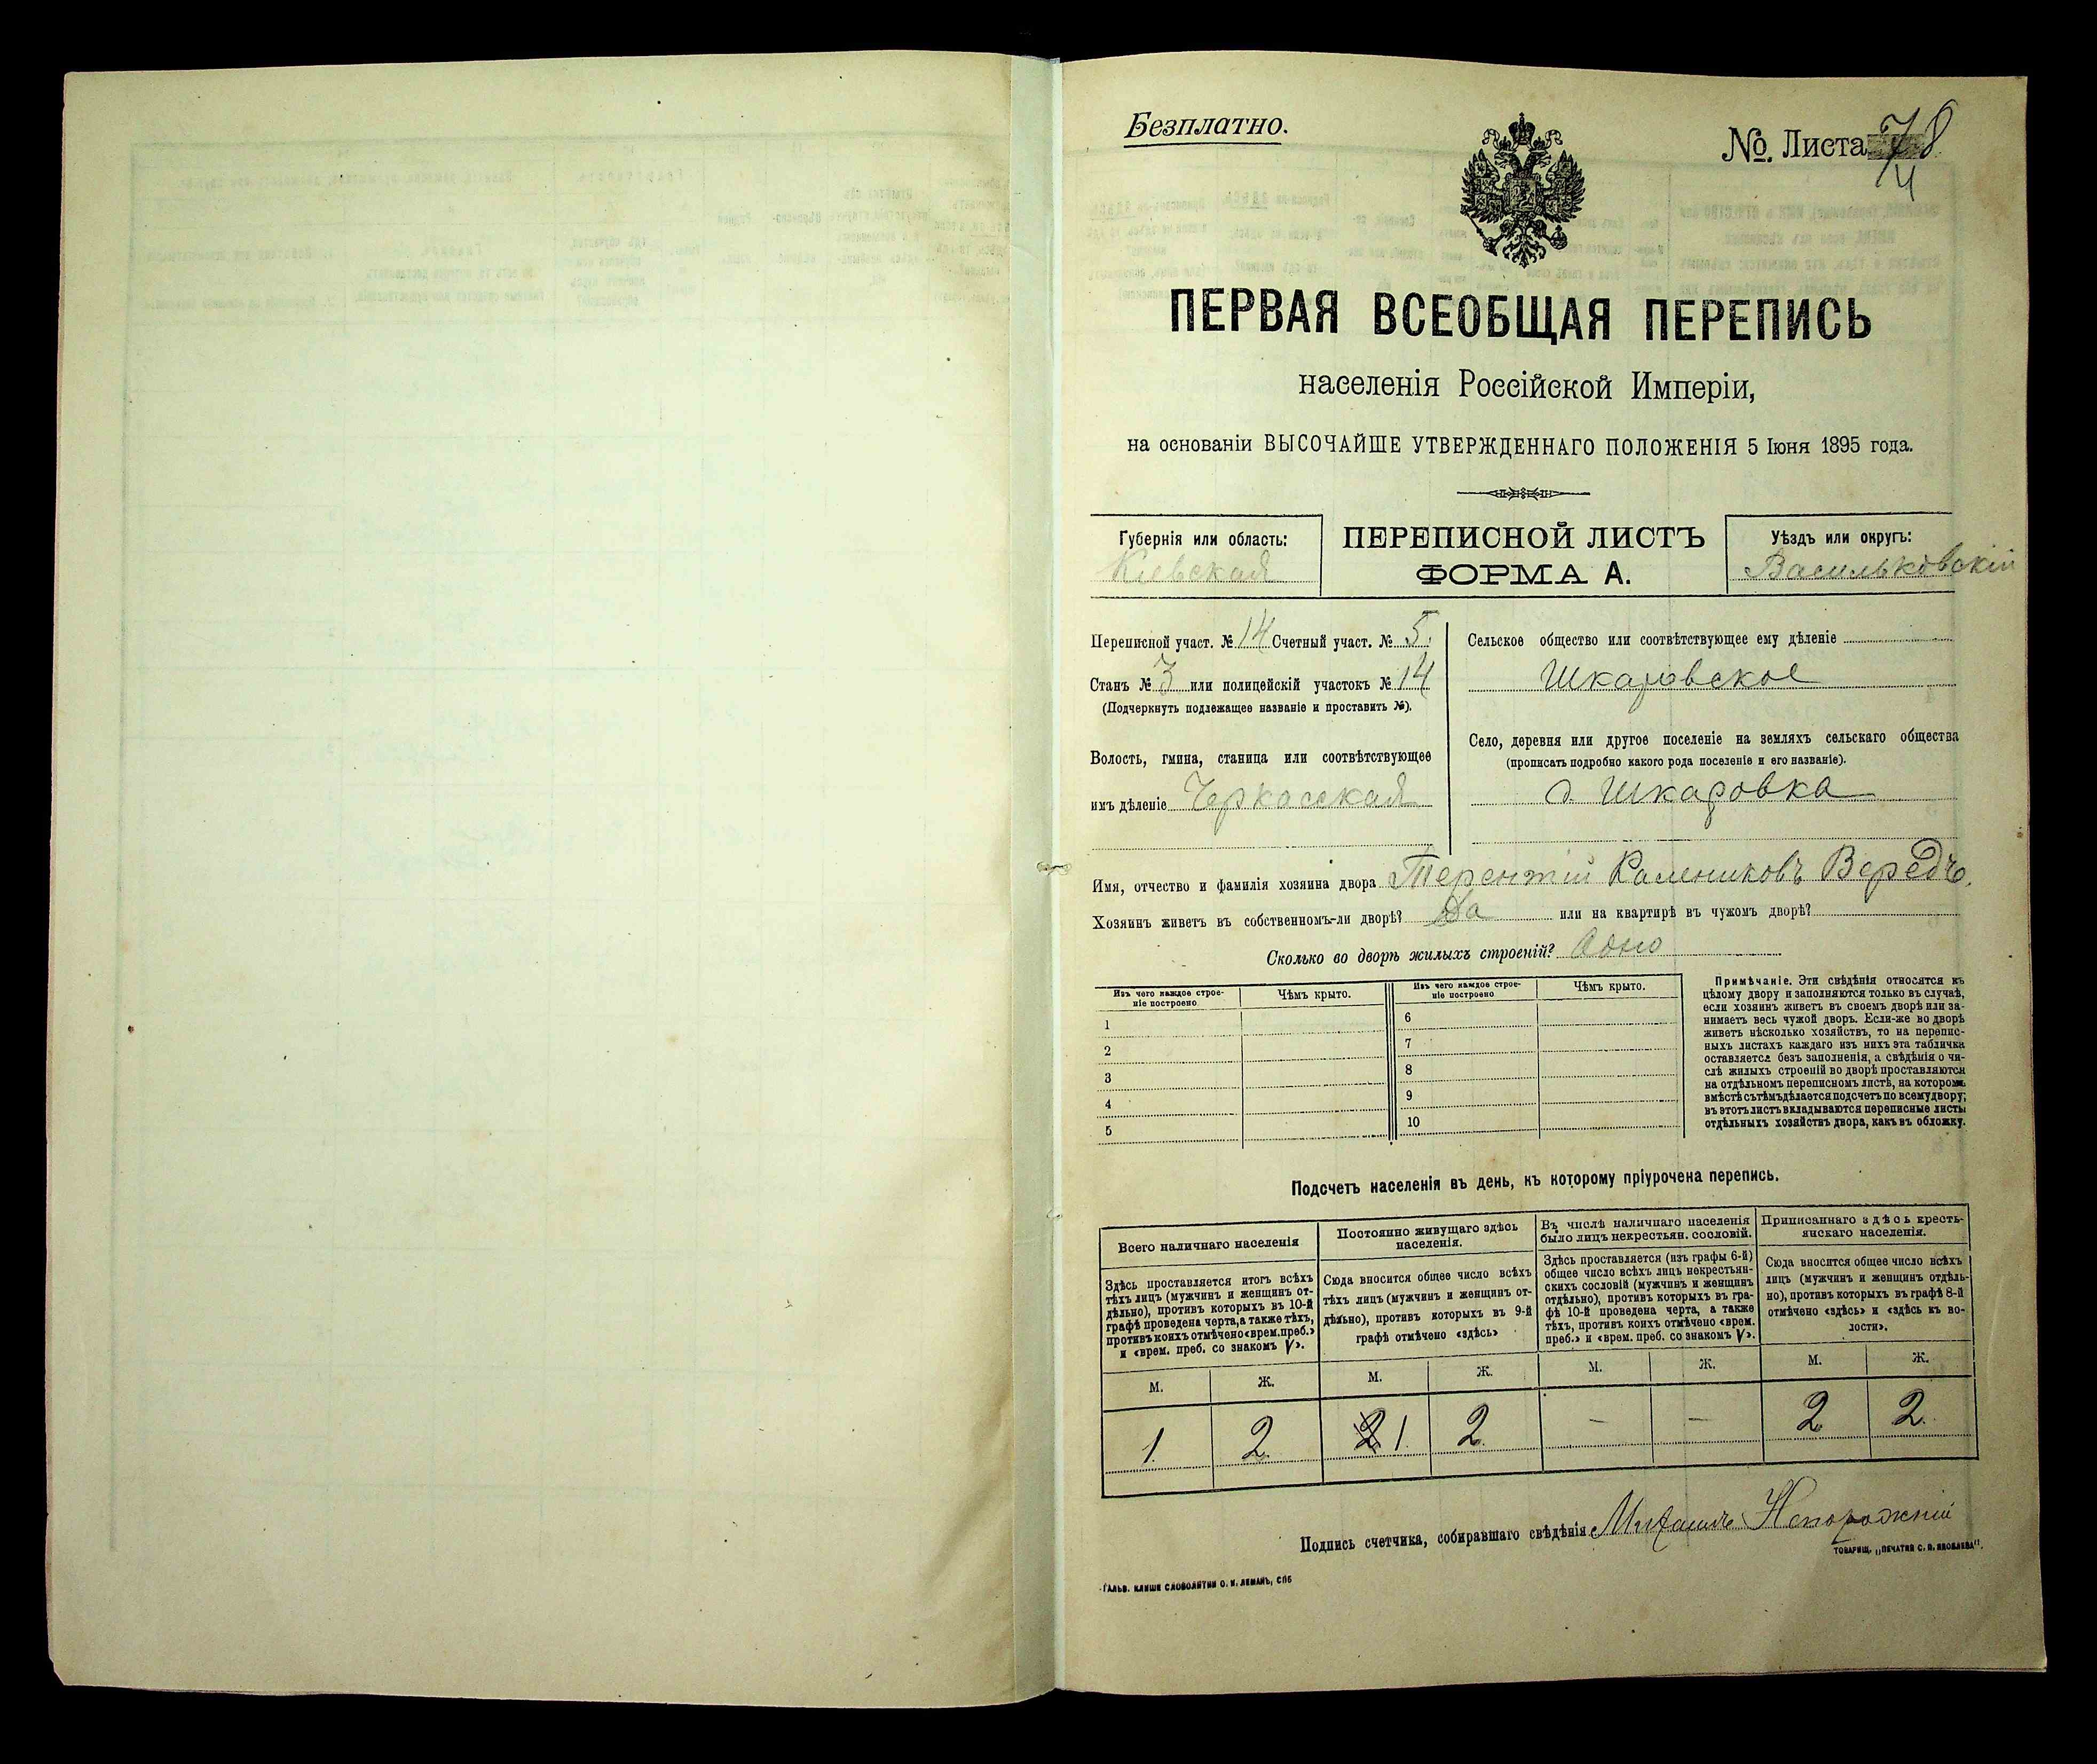 Безплатно.
№. Листа 78
ПЕРВАЯ ВСЕОБЩАЯ ПЕРЕПИСЬ
населенія Россійской Имперіи,
на основаніи ВЫСОЧАЙШЕ УТВЕРЖДЕННАГО ПОЛОЖЕНІЯ 5 Іюня 1895 года.
Губернія или область:
Кіевская
ПЕРЕПИСНОЙ ЛИСТЪ
ФОРМА А.
Уѣздъ или округъ:
Васильковскій
Переписной участ. № 14 Счетный участ. № 5.
Станъ № 3 или полицейскій участокъ № 14
(Подчеркнуть подлежащее названіе и проставить №).
Волость, гмина, станица или соотвѣтствующее
имъ дѣленіе Черкасская
Сельское общество или соотвѣтствующее ему дѣленіе
Шкаровское
Село, деревня или другое поселеніе на земляхъ сельскаго общества
(прописать подробно какого рода поселеніе и его названіе).
д. Шкаровка
Имя, отчество и фамилія хозяина двора Терентій Калениковъ Вередъ.
Хозяинъ живетъ въ собственномъ-ли дворѣ? Да или на квартирѣ въ чужомъ дворѣ?
Сколько во дворѣ жилыхъ строеній? Одно
Изъ чего каждое строе-
ніе построено
Чѣмъ крыто.
Изъ чего каждое строе-
ніе построено
Чѣмъ крыто.
1
2
3
4
5
6
7
8
9
10
Примѣчаніе. Эти свѣдѣнія относятся къ
цѣлому двору и заполняются только въ случаѣ,
если хозяинъ живетъ въ своемъ дворѣ или за-
нимаетъ весь чужой дворъ. Если-же во дворѣ
живетъ нѣсколько хозяйствъ, то на перепис-
ныхъ листахъ каждаго изъ нихъ эта табличка
оставляется безъ заполненія, а свѣдѣнія о чи-
слѣ жилыхъ строеній во дворѣ проставляются
на отдѣльномъ переписномъ листѣ, на которомъ
вмѣстѣ съ тѣмъ дѣлается подсчетъ по всему двору;
въ этотъ листъ вкладываются переписные листы
отдѣльныхъ хозяйствъ двора, какъ въ обложку.
Подсчетъ населенія въ день, къ которому пріурочена перепись.
Всего наличнаго населенія
Здѣсь проставляется итогъ всѣхъ
тѣхъ лицъ (мужчинъ и женщинъ от-
дѣльно), противъ которыхъ въ 10-й
графѣ проведена черта, а также тѣхъ,
противъ коихъ отмѣчено «врем. преб.»
и «врем. преб. со знакомъ V».
Постоянно живущаго здѣсь
населенія.
Сюда вносится общее число всѣхъ
тѣхъ лицъ (мужчинъ и женщинъ от-
дѣльно), противъ которыхъ въ 9-й
графѣ отмѣчено «здѣсь»
Въ числѣ наличнаго населенія
было лицъ некрестьян. сословій.
Здѣсь проставляется (изъ графы 6-й)
общее число всѣхъ лицъ некрестьян-
скихъ сословій (мужчинъ и женщинъ
отдѣльно), противъ которыхъ въ гра-
фѣ 10-й проведена черта, а также
тѣхъ, противъ коихъ отмѣчено «врем.
преб.» и «врем. преб. со знакомъ V».
Приписаннаго здѣсь кресть-
янскаго населенія.
Сюда вносится общее число всѣхъ
лицъ (мужчинъ и женщинъ отдѣль-
но), противъ которыхъ въ графѣ 8-й
отмѣчено «здѣсь» и «здѣсь къ во-
лости».
М. Ж. М. Ж. М. Ж. М. Ж.
1. 2. 2 1. 2. — — 2 2.
Подпись счетчика, собиравшаго свѣдѣнія: Михаилъ Непорожній
ТОВАРИЩ. „ПЕЧАТНЯ С. П. ЯКОВЛЕВА".
ГАЛЬВ. КЛИШЕ СЛОВОЛИТНИ О. И. ЛЕМАНЪ, СПБ